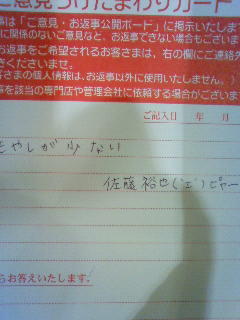 ご意見うけたまわりカード
事は「ご意見・お返事公開ボード」に掲示いたします
に関係のないご意見など、お返事できない場合もございま
お返事をご希望されるお客さまは、右の欄にご連絡先
きくださいませ。
客さまの個人情報は、お返事以外に使用いたしません。)
事を該当の専門店や管理会社に依頼する場合がございま
ご記入日 年 月
もやしが少ない
佐藤裕也(´Д`)ピャー
らお答えいたします。